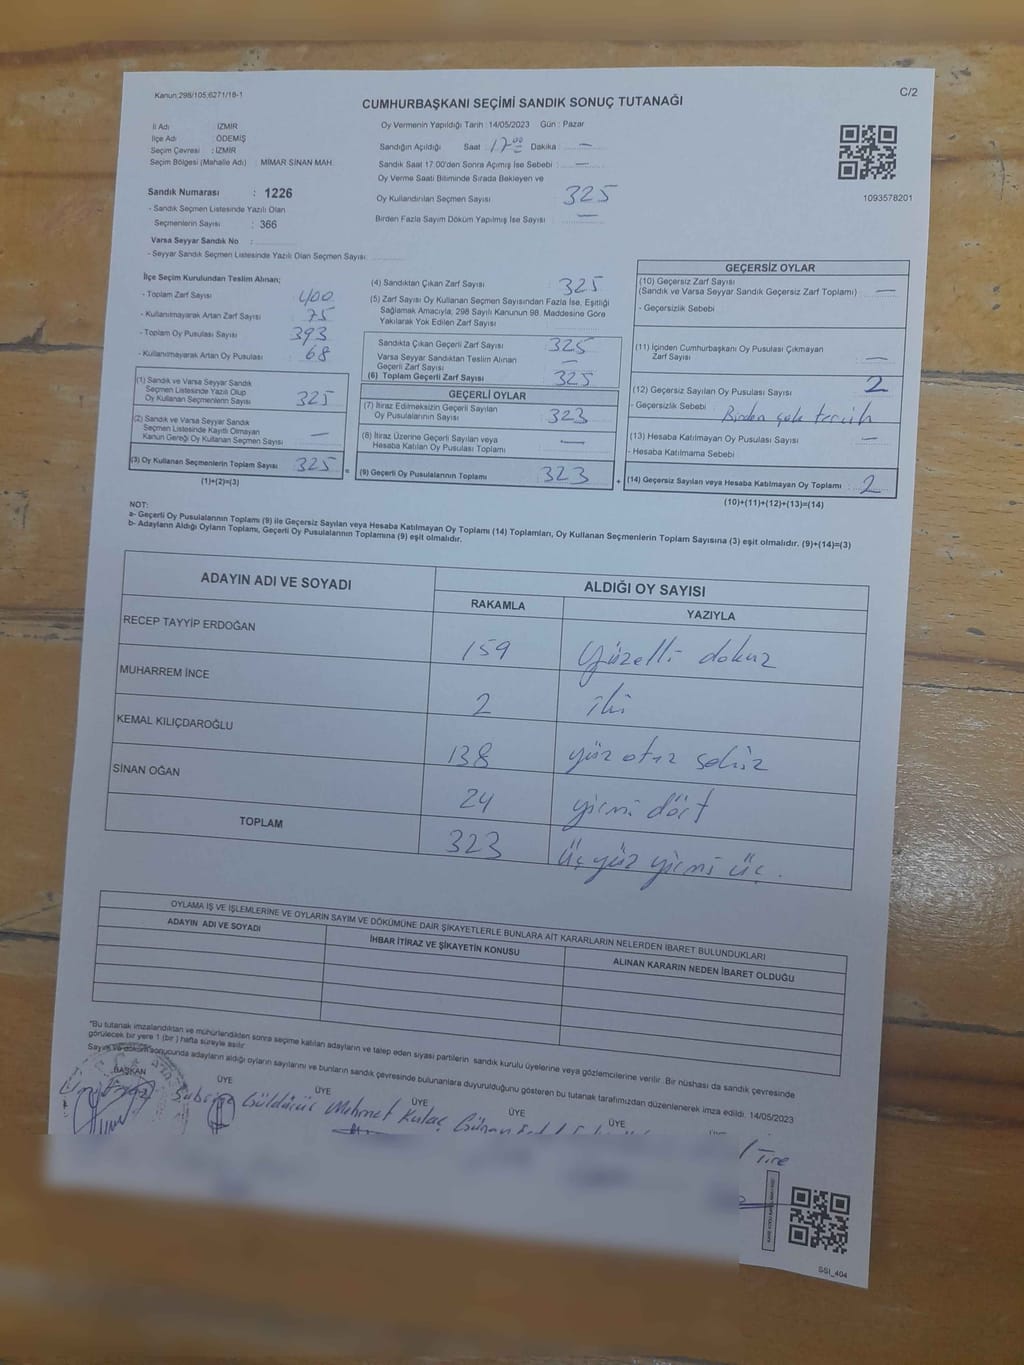 Kanun:298/105;6271/18-1
C/2
CUMHURBAŞKANI SEÇİMİ SANDIK SONUÇ TUTANAĞI
İl Adı : İZMİR
İlçe Adı : ÖDEMİŞ
Seçim Çevresi : İZMİR
Seçim Bölgesi (Mahalle Adı) : MİMAR SİNAN MAH.
Sandık Numarası : 1226
- Sandık Seçmen Listesinde Yazılı Olan
Seçmenlerin Sayısı : 366
Varsa Seyyar Sandık No :
- Seyyar Sandık Seçmen Listesinde Yazılı Olan Seçmen Sayısı
Oy Vermenin Yapıldığı Tarih :14/05/2023 Gün : Pazar
Sandığın Açıldığı Saat 17.00 Dakika : —
Sandık Saat 17:00'den Sonra Açımış İse Sebebi : —
Oy Verme Saati Bitiminde Sırada Bekleyen ve
Oy Kullandırılan Seçmen Sayısı 325
Birden Fazla Sayım Döküm Yapılmış İse Sayısı —
1093578201
İlçe Seçim Kurulundan Teslim Alınan;
- Toplam Zarf Sayısı 400
- Kullanılmayarak Artan Zarf Sayısı 75
- Toplam Oy Pusulası Sayısı 393
- Kullanılmayarak Artan Oy Pusulası 68
(1) Sandık ve Varsa Seyyar Sandık
Seçmen Listesinde Yazılı Olup
Oy Kullanan Seçmenlerin Sayısı 325
(2) Sandık ve Varsa Seyyar Sandık
Seçmen Listesinde Kayıtlı Olmayan
Kanun Gereği Oy Kullanan Seçmen Sayısı —
(3) Oy Kullanan Seçmenlerin Toplam Sayısı 325 =
(1)+(2)=(3)
(4) Sandıktan Çıkan Zarf Sayısı : 325
(5) Zarf Sayısı Oy Kullanan Seçmen Sayısından Fazla İse, Eşitliği
Sağlamak Amacıyla, 298 Sayılı Kanunun 98. Maddesine Göre
Yakılarak Yok Edilen Zarf Sayısı
Sandıkta Çıkan Geçerli Zarf Sayısı 325
Varsa Seyyar Sandıktan Teslim Alınan
Geçerli Zarf Sayısı —
(6) Toplam Geçerli Zarf Sayısı 325
GEÇERLİ OYLAR
(7) İtiraz Edilmeksizin Geçerli Sayılan
Oy Pusulalarının Sayısı : 323
(8) İtiraz Üzerine Geçerli Sayılan veya
Hesaba Katılan Oy Pusulası Toplamı —
(9) Geçerli Oy Pusulalarının Toplamı 323 +
GEÇERSİZ OYLAR
(10) Geçersiz Zarf Sayısı
(Sandık ve Varsa Seyyar Sandık Geçersiz Zarf Toplamı) : —
- Geçersizlik Sebebi
(11) İçinden Cumhurbaşkanı Oy Pusulası Çıkmayan
Zarf Sayısı —
(12) Geçersiz Sayılan Oy Pusulası Sayısı : 2
- Geçersizlik Sebebi Birden çok tercih
(13) Hesaba Katılmayan Oy Pusulası Sayısı : —
- Hesaba Katılmama Sebebi
(14) Geçersiz Sayılan veya Hesaba Katılmayan Oy Toplamı : 2
(10)+(11)+(12)+(13)=(14)
NOT:
a- Geçerli Oy Pusulalarının Toplamı (9) ile Geçersiz Sayılan veya Hesaba Katılmayan Oy Toplamı (14) Toplamları, Oy Kullanan Seçmenlerin Toplam Sayısına (3) eşit olmalıdır. (9)+(14)=(3)
b- Adayların Aldığı Oyların Toplamı, Geçerli Oy Pusulalarının Toplamına (9) eşit olmalıdır.
ADAYIN ADI VE SOYADI ALDIĞI OY SAYISI
RAKAMLA YAZIYLA
RECEP TAYYİP ERDOĞAN 159 Yüzelli dokuz
MUHARREM İNCE 2 iki
KEMAL KILIÇDAROĞLU 138 yüz otuz sekiz
SİNAN OĞAN 24 yirmi dört
TOPLAM 323 Üç yüz yirmi üç.
OYLAMA İŞ VE İŞLEMLERİNE VE OYLARIN SAYIM VE DÖKÜMÜNE DAİR ŞİKAYETLERLE BUNLARA AİT KARARLARIN NELERDEN İBARET BULUNDUKLARI
ADAYIN ADI VE SOYADI İHBAR İTİRAZ VE ŞİKAYETİN KONUSU ALINAN KARARIN NEDEN İBARET OLDUĞU
*Bu tutanak imzalandıktan ve mühürlendikten sonra seçime katılan adayların ve talep eden siyasi partilerin sandık kurulu üyelerine veya gözlemcilerine verilir. Bir nüshası da sandık çevresinde
görülecek bir yere 1 (bir) hafta süreyle asılır.
Sayım ve döküm sonucunda adayların aldığı oyların sayılarını ve bunların sandık çevresinde bulunanlara duyurulduğunu gösteren bu tutanak tarafımızdan düzenlenerek imza edildi. 14/05/2023
BAŞKAN ÜYE ÜYE ÜYE ÜYE ÜYE
Güldücü Mehmet Kulaç
Tire
SSI_404